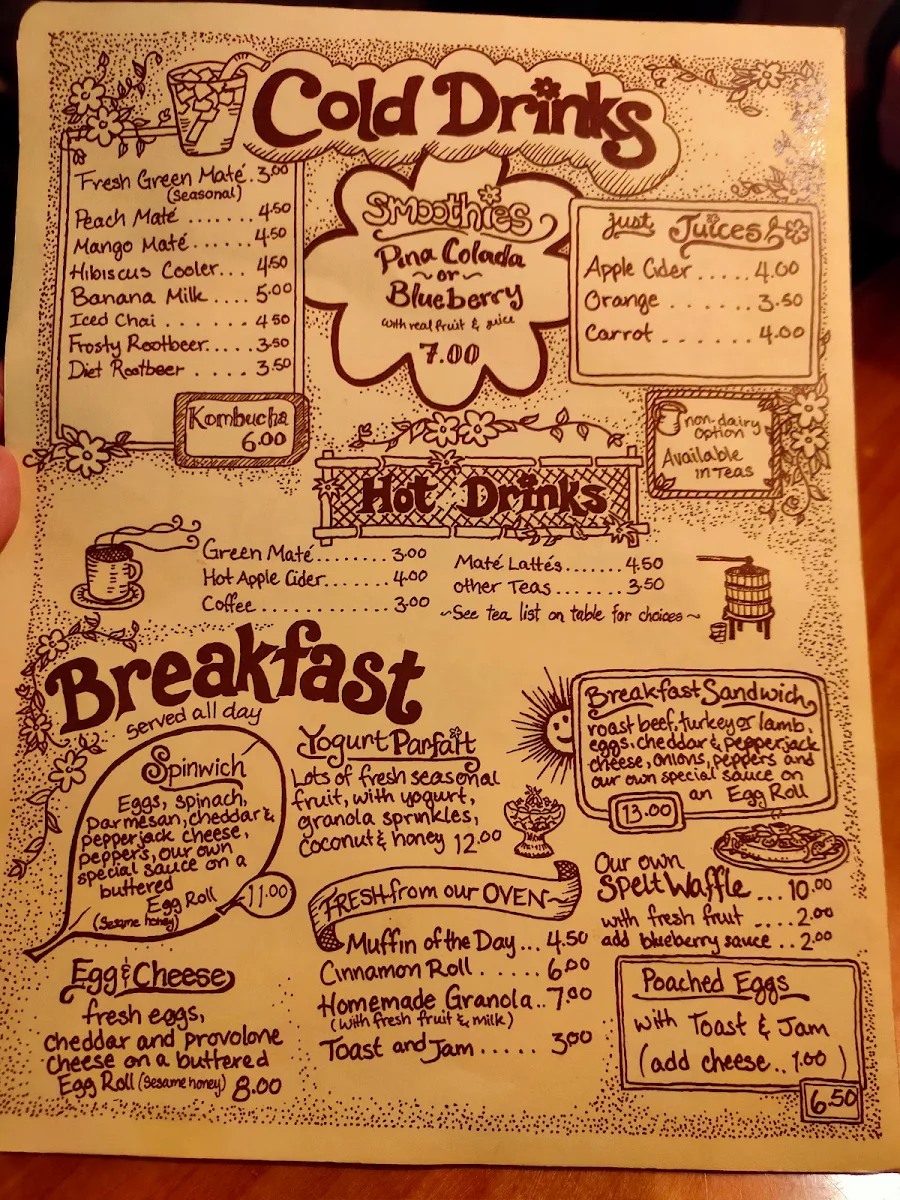 Cold Drinks
Fresh Green Maté..3.00
(Seasonal)
Peach Maté .......4.50
Mango Maté......4.50
Hibiscus Cooler... 4.50
Banana Milk .... 5.00
Iced Chai ....... 4.50
Frosty Rootbeer.....3.50
Diet Rootbeer .... 3.50
Kombucha
6.00
Smoothies
Pina Colada
~or~
Blueberry
with real fruit & juice
7.00
just Juices
Apple Cider .....4.00
Orange .......3.50
Carrot ......4.00
non-dairy
option
Available
in Teas
Hot Drinks
Green Maté........3.00
Hot Apple Cider.......4.00
Coffee .............3.00
Maté Lattés.......4.50
other Teas.......3.50
~See tea list on table for choices~
Breakfast
served all day
Spinwich
Eggs, spinach,
parmesan, cheddar &
pepperjack cheese,
peppers, our own
special sauce on a
buttered
Egg Roll
(Sesame honey)
11.00
Egg & Cheese
fresh eggs,
cheddar and provolone
cheese on a buttered
Egg Roll (Sesame honey) 8.00
Yogurt Parfait
Lots of fresh seasonal
fruit, with yogurt,
granola sprinkles,
coconut & honey 12.00
FRESH from our OVEN~
Muffin of the Day... 4.50
Cinnamon Roll ..... 6.00
Homemade Granola..7.00
(with fresh fruit & milk)
Toast and Jam..... 3.00
Breakfast Sandwich
roast beef, turkey or lamb,
eggs, cheddar & pepperjack
cheese, onions, peppers and
our own special sauce on
an Egg Roll
13.00
Our own
Spelt Waffle ...10.00
with fresh fruit ....2.00
add blueberry sauce ..2.00
Poached Eggs
with Toast & Jam
(add cheese..1.00)
6.50